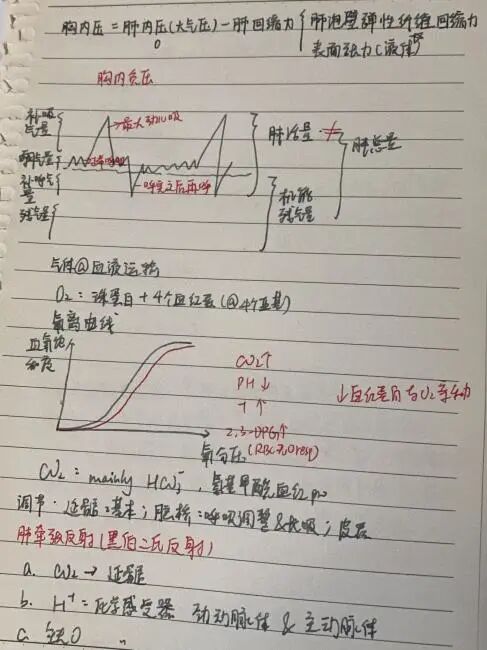 胸内压 = 肺内压(大气压) - 肺回缩力 { 肺泡壁弹性纤维回缩力
0
表面张力(液体)
胸内负压
补吸气量
最大力吸
肺活量 ≠
肺总量
潮气量
补呼气量
呼完之后再呼
残气量
机能残气量
气体@血液运输
O2: 珠蛋白 + 4个血红素(@4个亚基)
氧离曲线
血氧饱和度
CO2↑
PH↓
T↑
2,3-DPG↑
(RBC无O resp)
↓血红蛋白与O2亲和力
氧分压
CO2: mainly HCO3-, 氨基甲酸血红pro
调节: 延髓:基本; 脑桥:呼吸调整&长吸; 皮层
肺牵张反射(黑伯二氏反射)
a. CO2 → 延髓
b. H+ = 化学感受器 颈动脉体 & 主动脉体
c. 缺O "